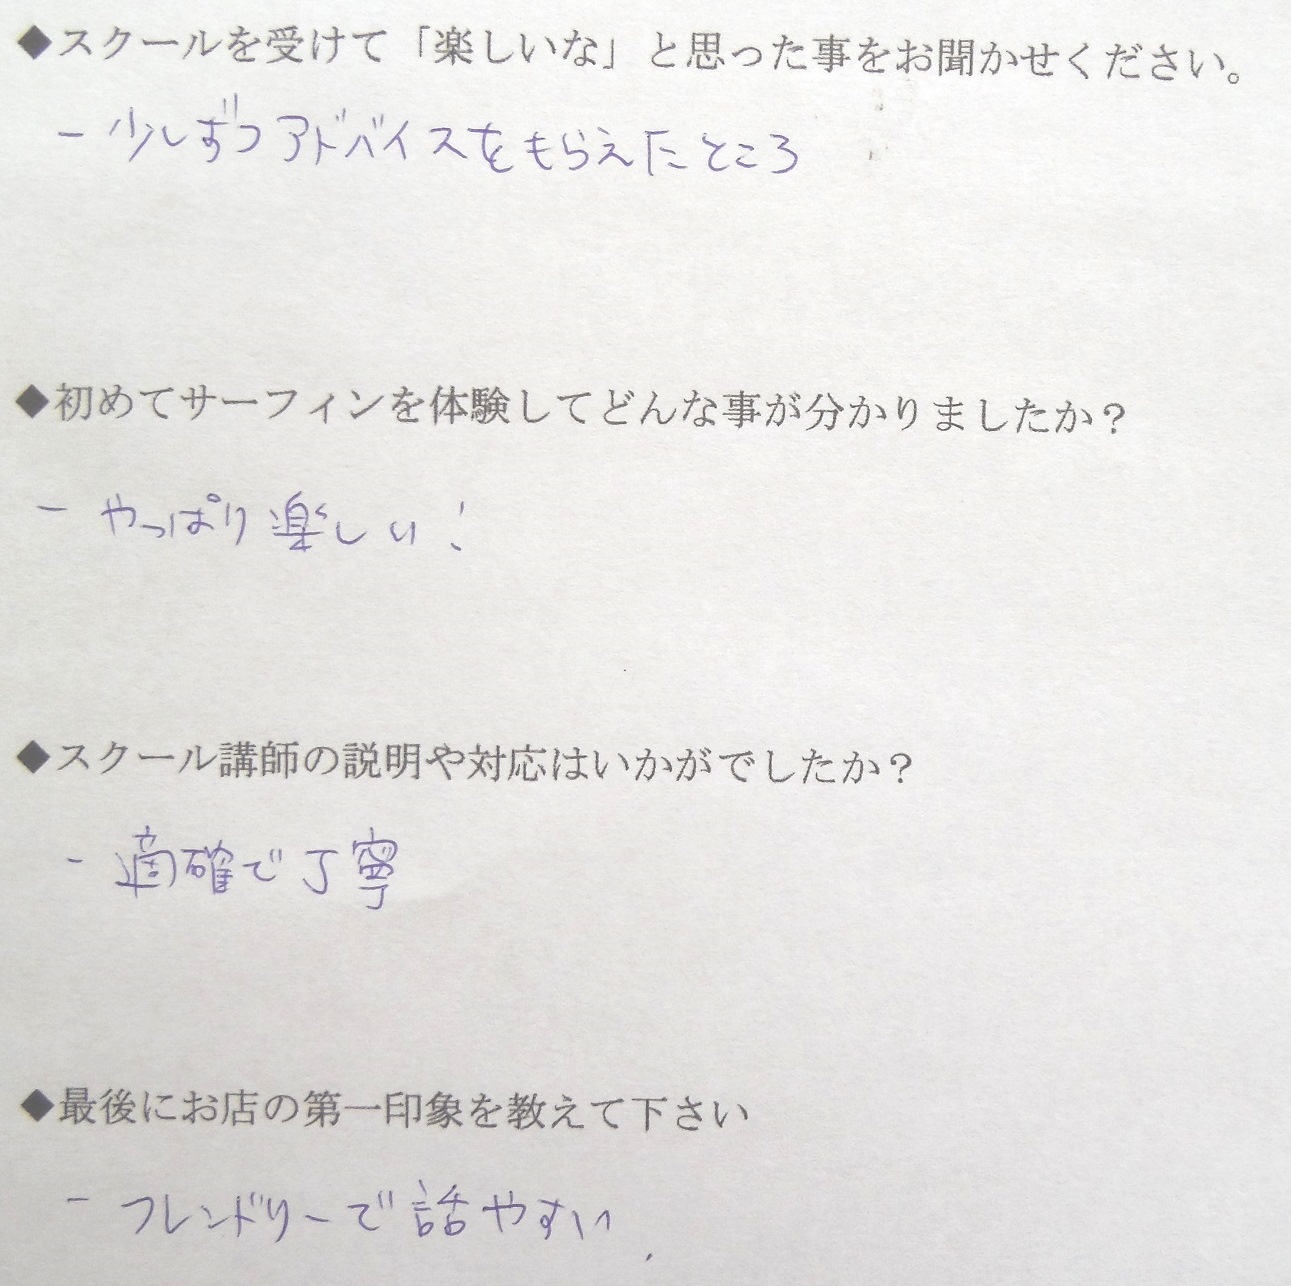 ◆スクールを受けて「楽しいな」と思った事をお聞かせください。
- 少しずつアドバイスをもらえたところ
◆初めてサーフィンを体験してどんな事が分かりましたか？
- やっぱり楽しい！
◆スクール講師の説明や対応はいかがでしたか？
- 適確で丁寧
◆最後にお店の第一印象を教えて下さい
- フレンドリーで話やすい.